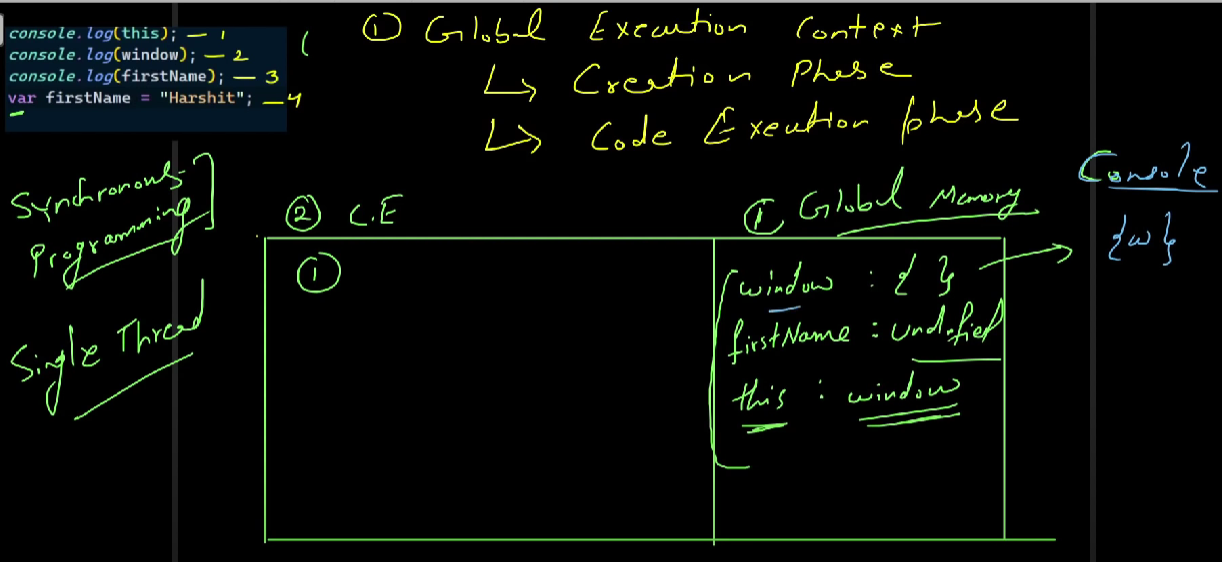 console.log(this); — 1
console.log(window); — 2
console.log(firstName); — 3
var firstName = "Harshit"; — 4
① Global Execution Context
↳ Creation Phase
↳ Code Execution phase
Synchronous
Programming
Single Thread
② C.E
① Global Memory
①
window : { }
firstName : undefied
this : window
Console
{w}